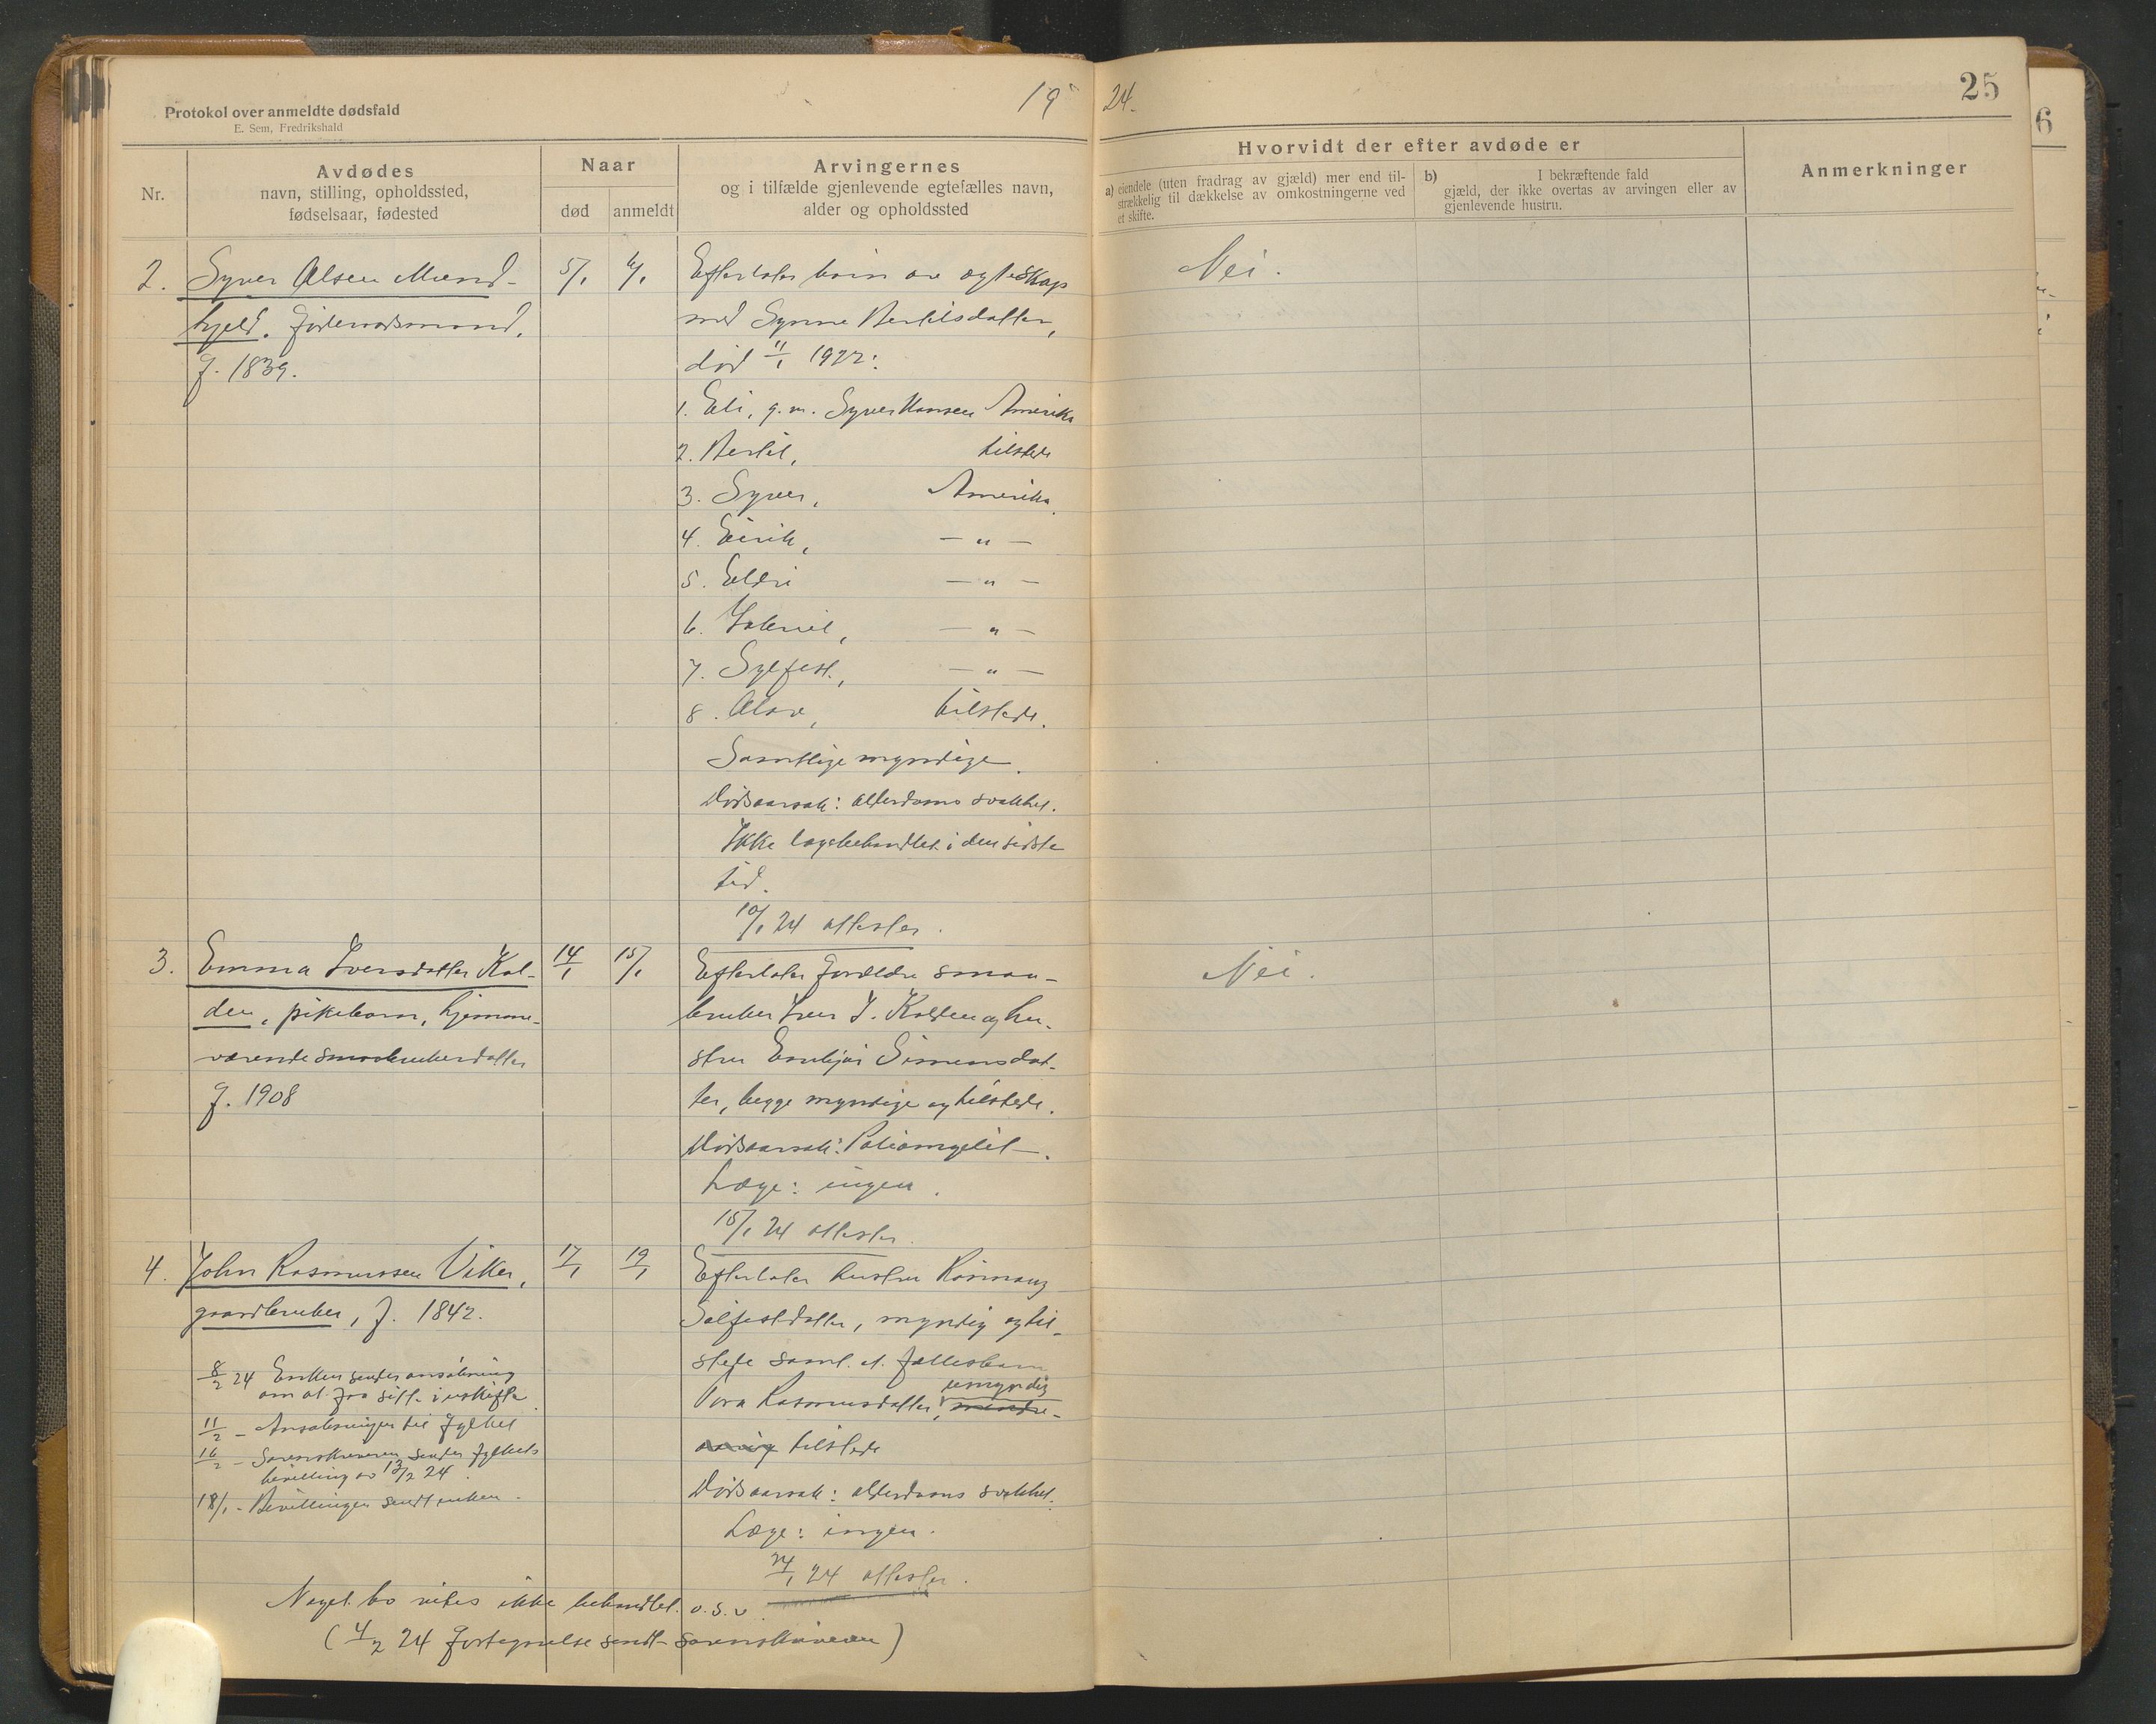 Protokol over anmeldte dødsfald
E. Sem, Fredrikshald
19 24.
25
6
Nr.
Avdødes
navn, stilling, opholdssted,
fødselsaar, fødested
Naar
død anmeldt
Arvingernes
og i tilfælde gjenlevende egtefælles navn,
alder og opholdssted
Hvorvidt der efter avdøde er
a) eiendele (uten fradrag av gjæld) mer end til-
strækkelig til dækkelse av omkostningerne ved
et skifte.
b) I bekræftende fald
gjæld, der ikke overtas av arvingen eller av
gjenlevende hustru.
Anmerkninger
2. Syver Olsen Mund-
hjeld. Føderaadsmand,
f. 1839.
5/1 6/1
Efterlater barn av ægteskap
med Synne Bertilsdatter,
død 11/1 1922:
1. Eli, g.m. Syver Hansen Amerika
2. Bertil, tilstede
3. Syver, Amerika.
4. Eirik, — " —
5. Eldri — " —
6. Gabriel, — " —
7. Sylfest, — " —
8. Olav, tilstede.
Samtlige myndige.
Dødsaarsak: alderdoms svakhet.
Ikke lægebehandlet i den sidste
tid.
10/1 24 attester.
Nei.
3. Emma Iversdatter Kol-
den, pikebarn, hjemme-
værende smaabrukerdatter
f. 1908
14/1 15/1
Efterlater forældre smaa-
bruker Iver I. Kolden og hu-
stru Simensdat-
ter, begge myndige og tilstede.
Dødsaarsak: Poliomyelit.
Læge: ingen.
15/1 24 attester.
Nei.
4. John Rasmussen Viker,
gaardbruker, f. 1842.
17/1 19/1
Efterlater hustru
Sølfestdatter, myndig og til-
stede samt et fællesbarn
Rasmusdatter, umyndig mindre-
aarig tilstede
Dødsaarsak: alderdoms svakhet.
Læge: ingen.
24/1 24 attester.
8/2 24 Enken sender ansøkning
om at faa sitte i uskifte.
11/2 - Ansøkningen til fylket
16/2 - Sorenskriveren sender fylkets
bevilling av 13/2 24.
18/1 - Bevillingen sendt enken.
Noget bo vites ikke behandlet o.s.v.
(4/2 24 fortegnelse sendt sorenskriveren)